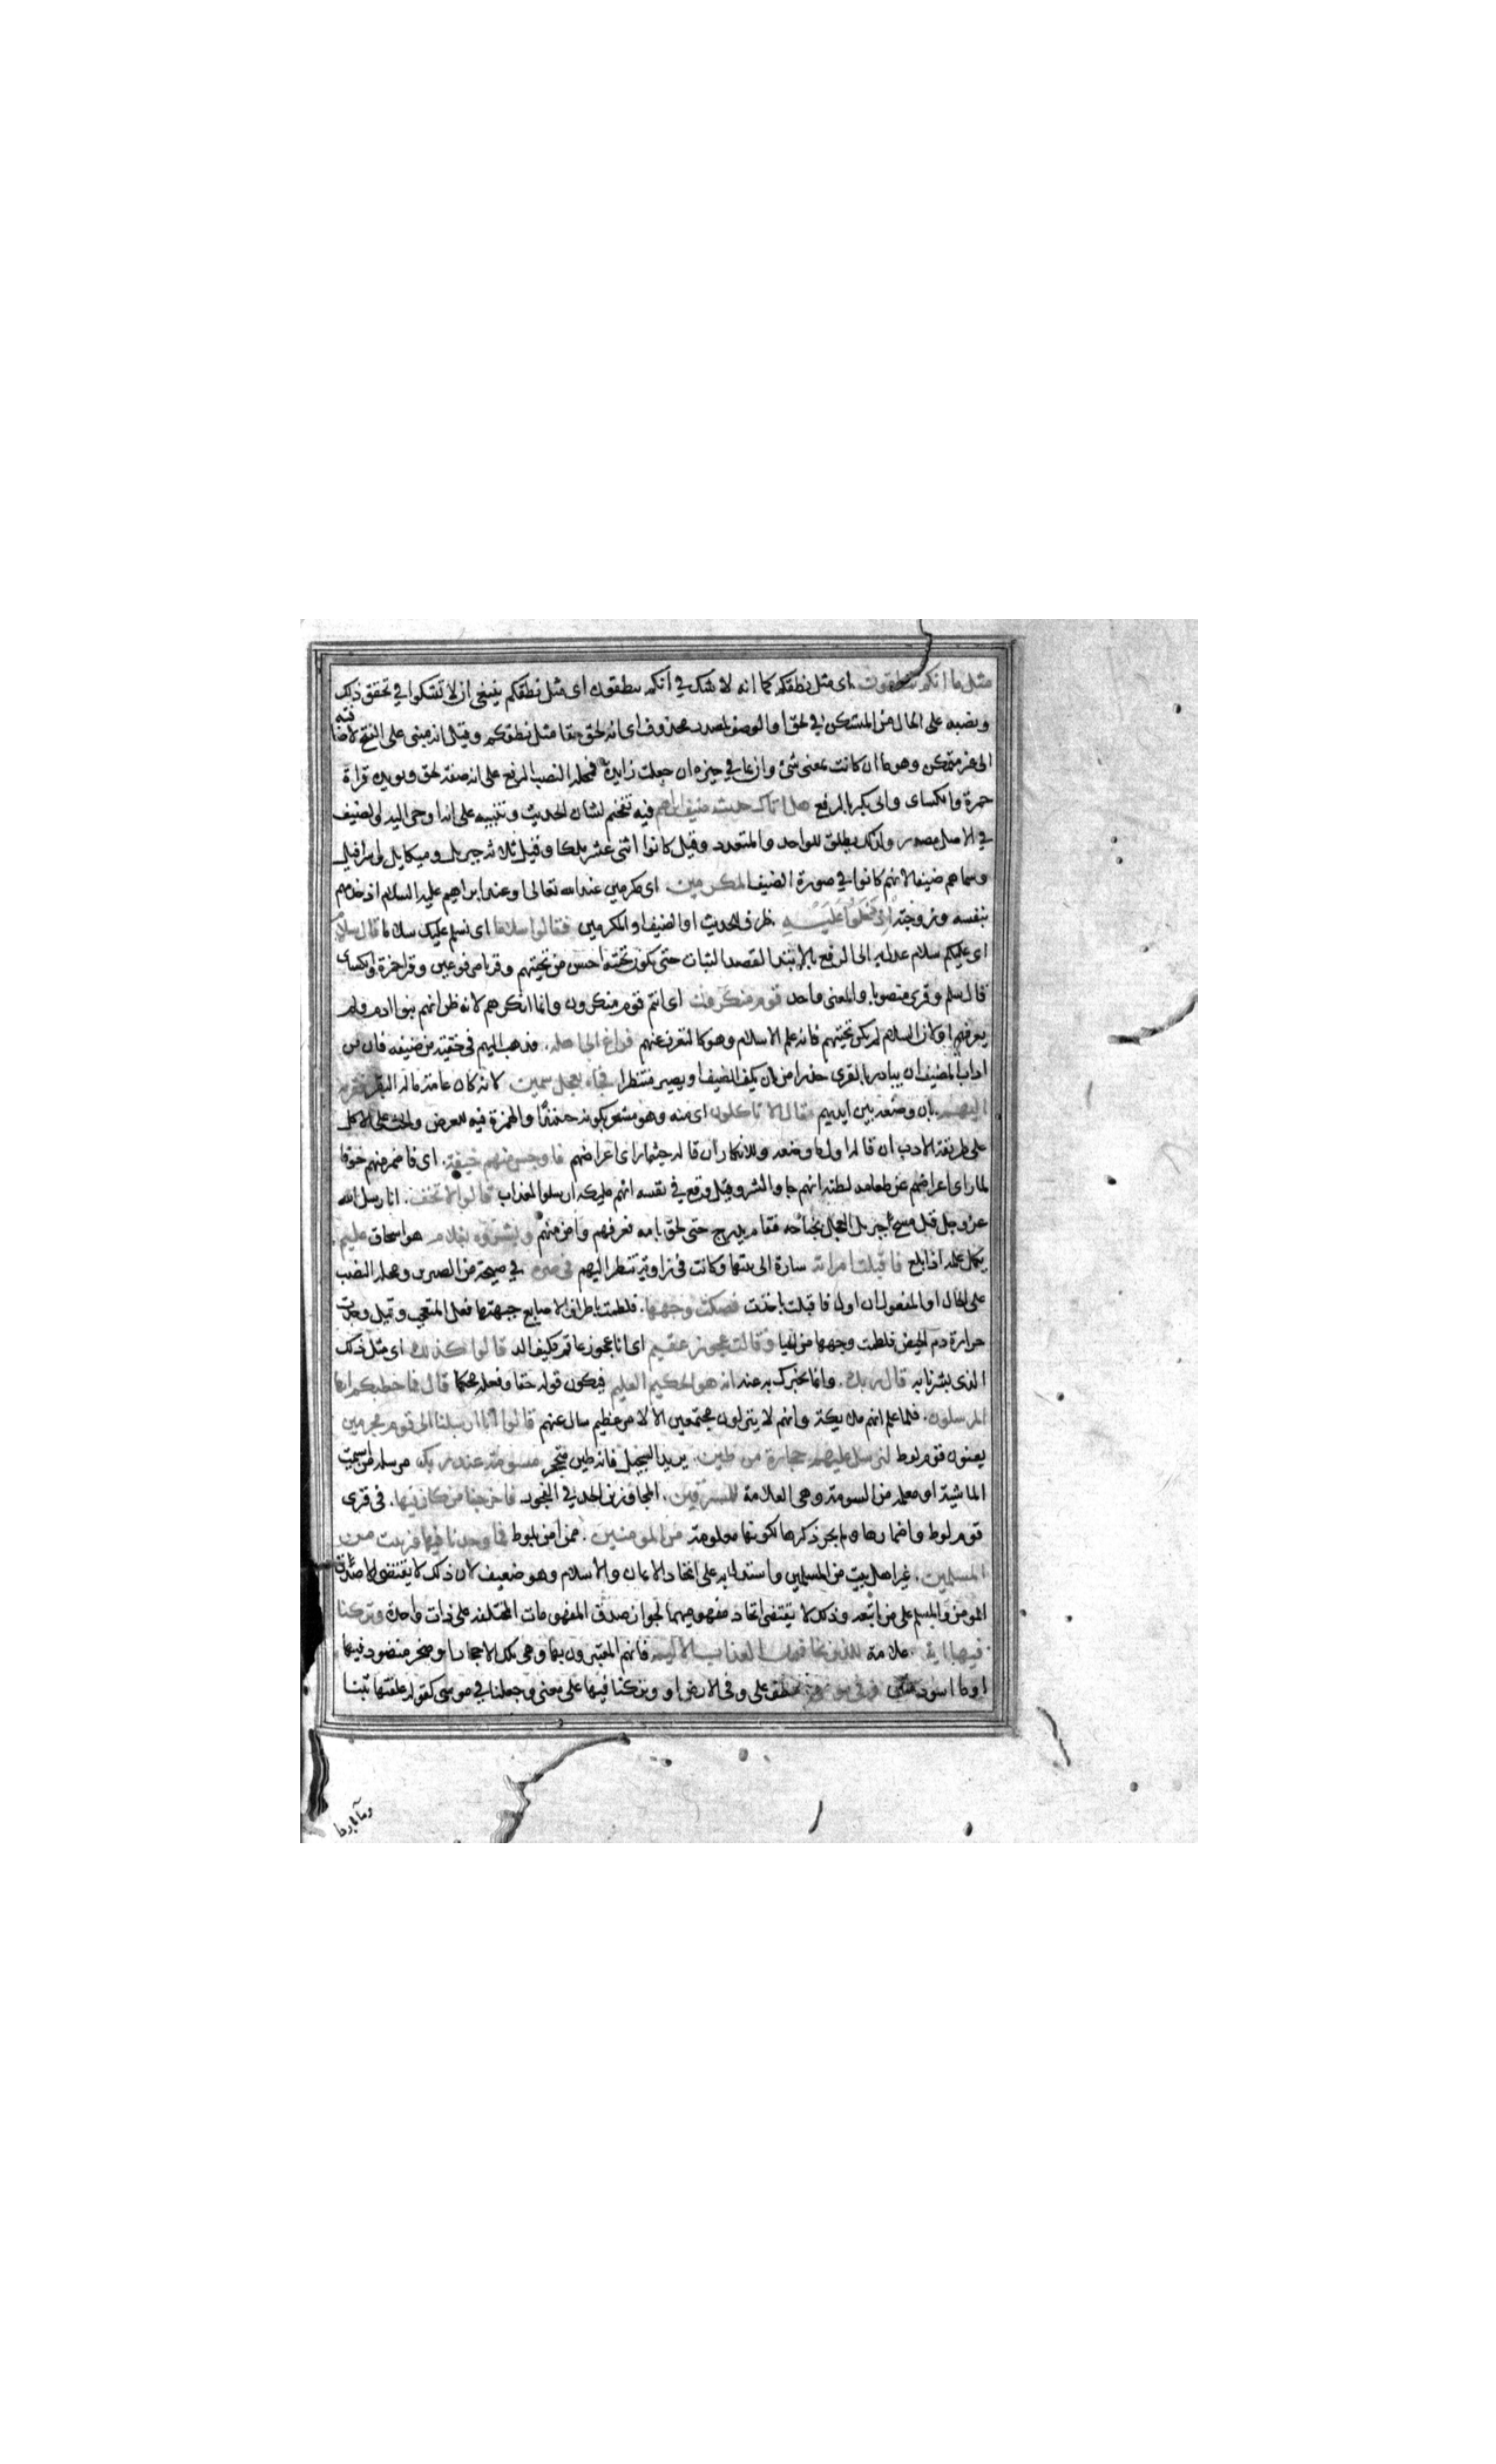 مثل ما انكم تنطقون اى مثل نطقكم كما انه لا شك في انكم تنطقون اى مثل نطقكم ينبغى ان لا تشكوا في تحقق ذلك
ونصبه على الحال من المستكن في لحق او الوصف لمصدر محذوف اى انه لحق حقا مثل نطقكم وقيل انه مبنى على الفتح لاضافته
الى غير متمكن وهو ما ان كانت بمعنى شئ وان بما في حيزه ان جعلت زايدة فمحله الرفع على انه صفة لحق ويويده قراة
حمزة والكساى وابى بكر بالرفع هل اتاك حديث ضيف ابراهم فيه تفخيم لشان الحديث وتنبيه على انه اوحى اليه والضيف
في الاصل مصدر ولذلك يطلق للواحد والمتعدد وقيل كانوا اثنى عشر ملكا وقيل ثلاثه جبريل وميكايل واسرافيل
وسماهم ضيفا لانهم كانوا في صورة الضيف المكرمين اى مكرمين عند الله تعالى او عند ابراهيم عليه السلام اذ خدمهم
بنفسه وزوجته اذ دخلوا عليه ظرف للحديث او الضيف او المكرمين فقالوا سلاما اى نسلم عليك سلاما قال سلام
اى عليكم سلام عدل به الى الرفع بالابتدا لقصد الثبات حتى يكون تحيته احسن من تحيتهم وقريا مرفوعين وقرا حمزة والكساى
قال سلم وقرى منصوبا والمعنى واحد قوم منكرون اى انتم قوم منكرون وانما انكرهم لانه ظن انهم بنوا ادم ولم
يعرفهم او لان السلام لم يكن تحيتهم فانه علم الاسلام وهو كالتعرف عنهم فراغ الى اهله فذهب اليهم في خفية من ضيفه فان من
اداب المضيف ان يبادر بالقرى حذرا من ان يكفه الضيف او يصير منتظرا فجاء بعجل سمين لانه كان عامة ماله البقر فقربه
اليهم بان وضعه بين ايديهم فقال الا تاكلون اى منه وهو مشعر بكونه حنيذا والهمزة فيه للعرض والحث على الاكل
على طريقة الادب ان قاله اول ما وضعه وللانكار ان قاله حيثما راى اعراضهم فاوجس منهم خيفة اى فاضمر منهم خوفا
لما راى اعراضهم عن طعامه لظنه انهم جاوا لشر وقيل وقع في نفسه انهم مليكة ارسلوا للعذاب قالوا لا تخف انا رسل الله
عز وجل قيل مسح جبريل العجل بجناحه فقام يدرج حتى لحق بامه فعرفهم وامن منهم وبشروه بغلام هو اسحاق عليم
يكمل علمه اذا بلغ فاقبلت امراته سارة الى بيتها وكانت في زاوية تنتظر اليهم في صرة في صيحة من الصرير ومحله النصب
على الحال او المفعول ان اول فاقبلت باخذت فصكت وجهها فلطمت باطراف الاصابع جبهتها فعل المتعجب وقيل وجدت
حرارة دم الحيض فلطمت وجهها من الحيا وقالت عجوز عقيم اى انا عجوز عاقر فكيف الد قالوا كذلك اى مثل ذلك
الذى بشرنا به قال ربك وانما نخبرك به عنه انه هو الحكيم العليم فيكون قوله حقا وفعله محكما قال فما خطبكم ايها
المرسلون فلما علم انهم ملايكة وانهم لا ينزلون مجتمعين الا لامر عظيم سال عنهم قالوا انا ارسلنا الى قوم مجرمين
يعنون قوم لوط لنرسل عليهم حجارة من طين يريد السجيل فانه طين متحجر مسومة عند ربك مرسلة من اسمت
الماشية او معلمة من السومة وهى العلامة للمسرفين المجاوزين الحد في الفجور فاخرجنا من كان فيها في قرى
قوم لوط واضمارها ولم يجر ذكرها لكونها معلومة من المومنين ممن امن بلوط فما وجدنا فيها غير بيت من
المسلمين غير اهل بيت من المسلمين واستدل به على اتحاد الايمان والاسلام وهو ضعيف لان ذلك لا يقتضى الا صدق
المومن والمسلم على من اتبعه وذلك لا يقتضى اتحاد مفهوميهما لجواز صدق المفهومات المختلفة على ذات واحدة وتركنا
فيها اية علامة للذين يخافون العذاب الاليم فانهم المعتبرون بها وهى تلك الاحجار او صخر منضود فيها
او ماء اسود منتن وفي موسى عطف على وفى الارض او وتركنا فيها على معنى وجعلنا في موسى كقوله علفتها تبنا
وماء باردا